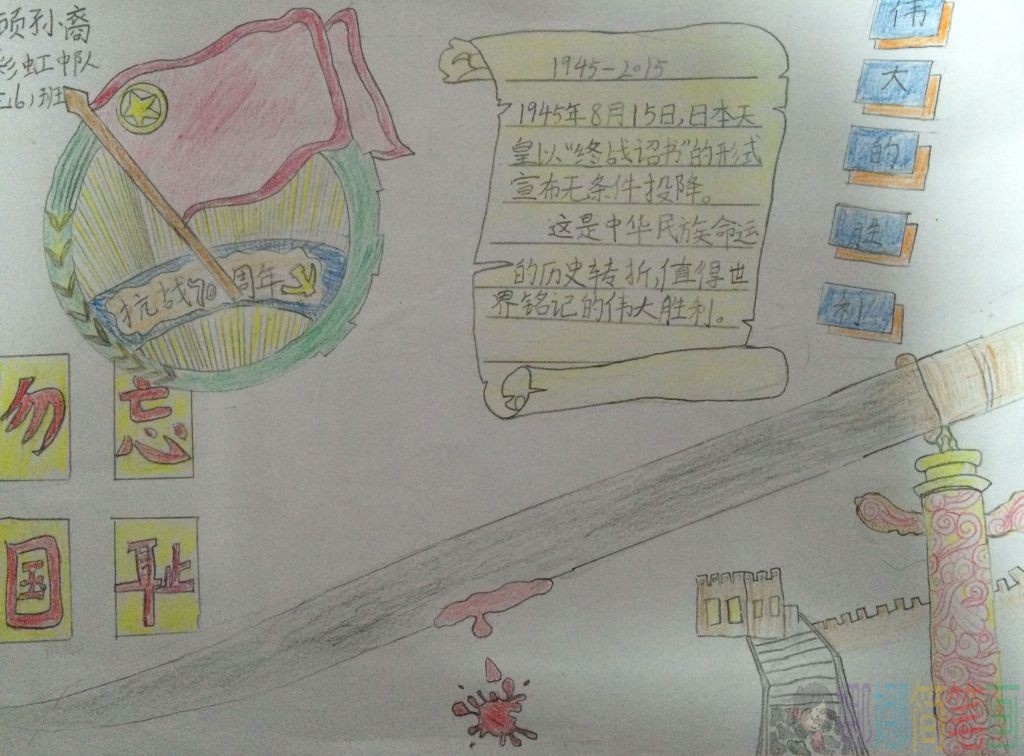 顾孙裔
彩虹中队
三(6)班
抗战70周年
勿忘
国耻
1945-2015
1945年8月15日,日本天
皇以“终战诏书”的形式
宣布无条件投降。
这是中华民族命运
的历史转折,值得世
界铭记的伟大胜利。
伟
大
的
胜
利
简笔画